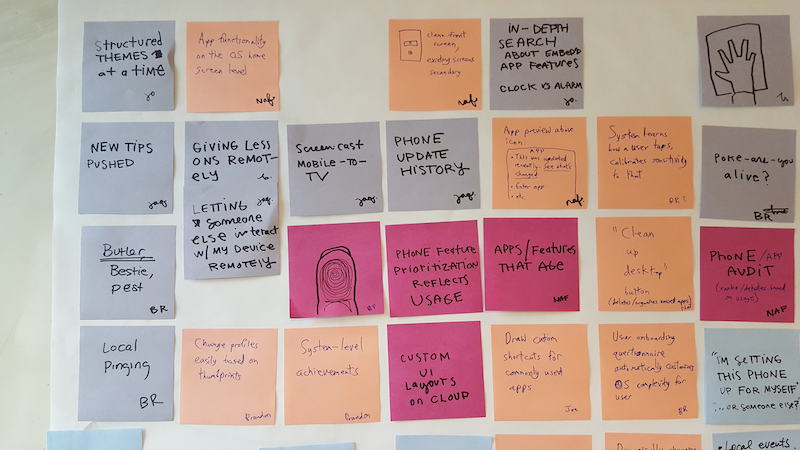 Structured
THEMES
at a time
Jo
App functionality
on the OS home
screen level
Naf.
clean front
screen,
existing screens
secondary
naf.
IN-DEPTH
SEARCH
ABOUT EMBEDD
APP FEATURES
CLOCK → ALARM
Jo.
NEW TIPS
PUSHED
Jaq.
GIVING LESS
ONS REMOT-
ELY
Screencast
MOBILE-TO-
TV
Jaq.
PHONE
UPDATE
HISTORY
Jaq.
App preview above
icon
APP
• This was updated
recently. See what's
changed
• Enter app
• etc.
naf.
System learns
how a user taps,
calibrates sensitivity
to that
BR
Poke-are-you
alive?
BR
Jaq.
LETTING
Someone
ELSE interact
w/ MY Device
REMOTELY
Butler,
Bestie,
pest
BR
BR
PHONE Feature
Prioritization
REFLECTS
USAGE
APPS/Features
THAT AGE
NAF
"Clean
up
desktop"
button
(deletes/organizes unused apps)
PHONE/APP
AUDIT
NAF
Local
Pinging
BR
Change profiles
easily based on
thumbprints
Brandon
System-level
achievements
Brandon
CUSTOM
UI
Layouts
on CLOUD
Draw custom
shortcuts for
commonly used
apps
Joe
User onboarding
questionnaire
automatically customizes
OS complexity for
user
BR
"IM SETTING
THIS PHONE
UP FOR MYSELF"
"...or someone else?"
• Local events